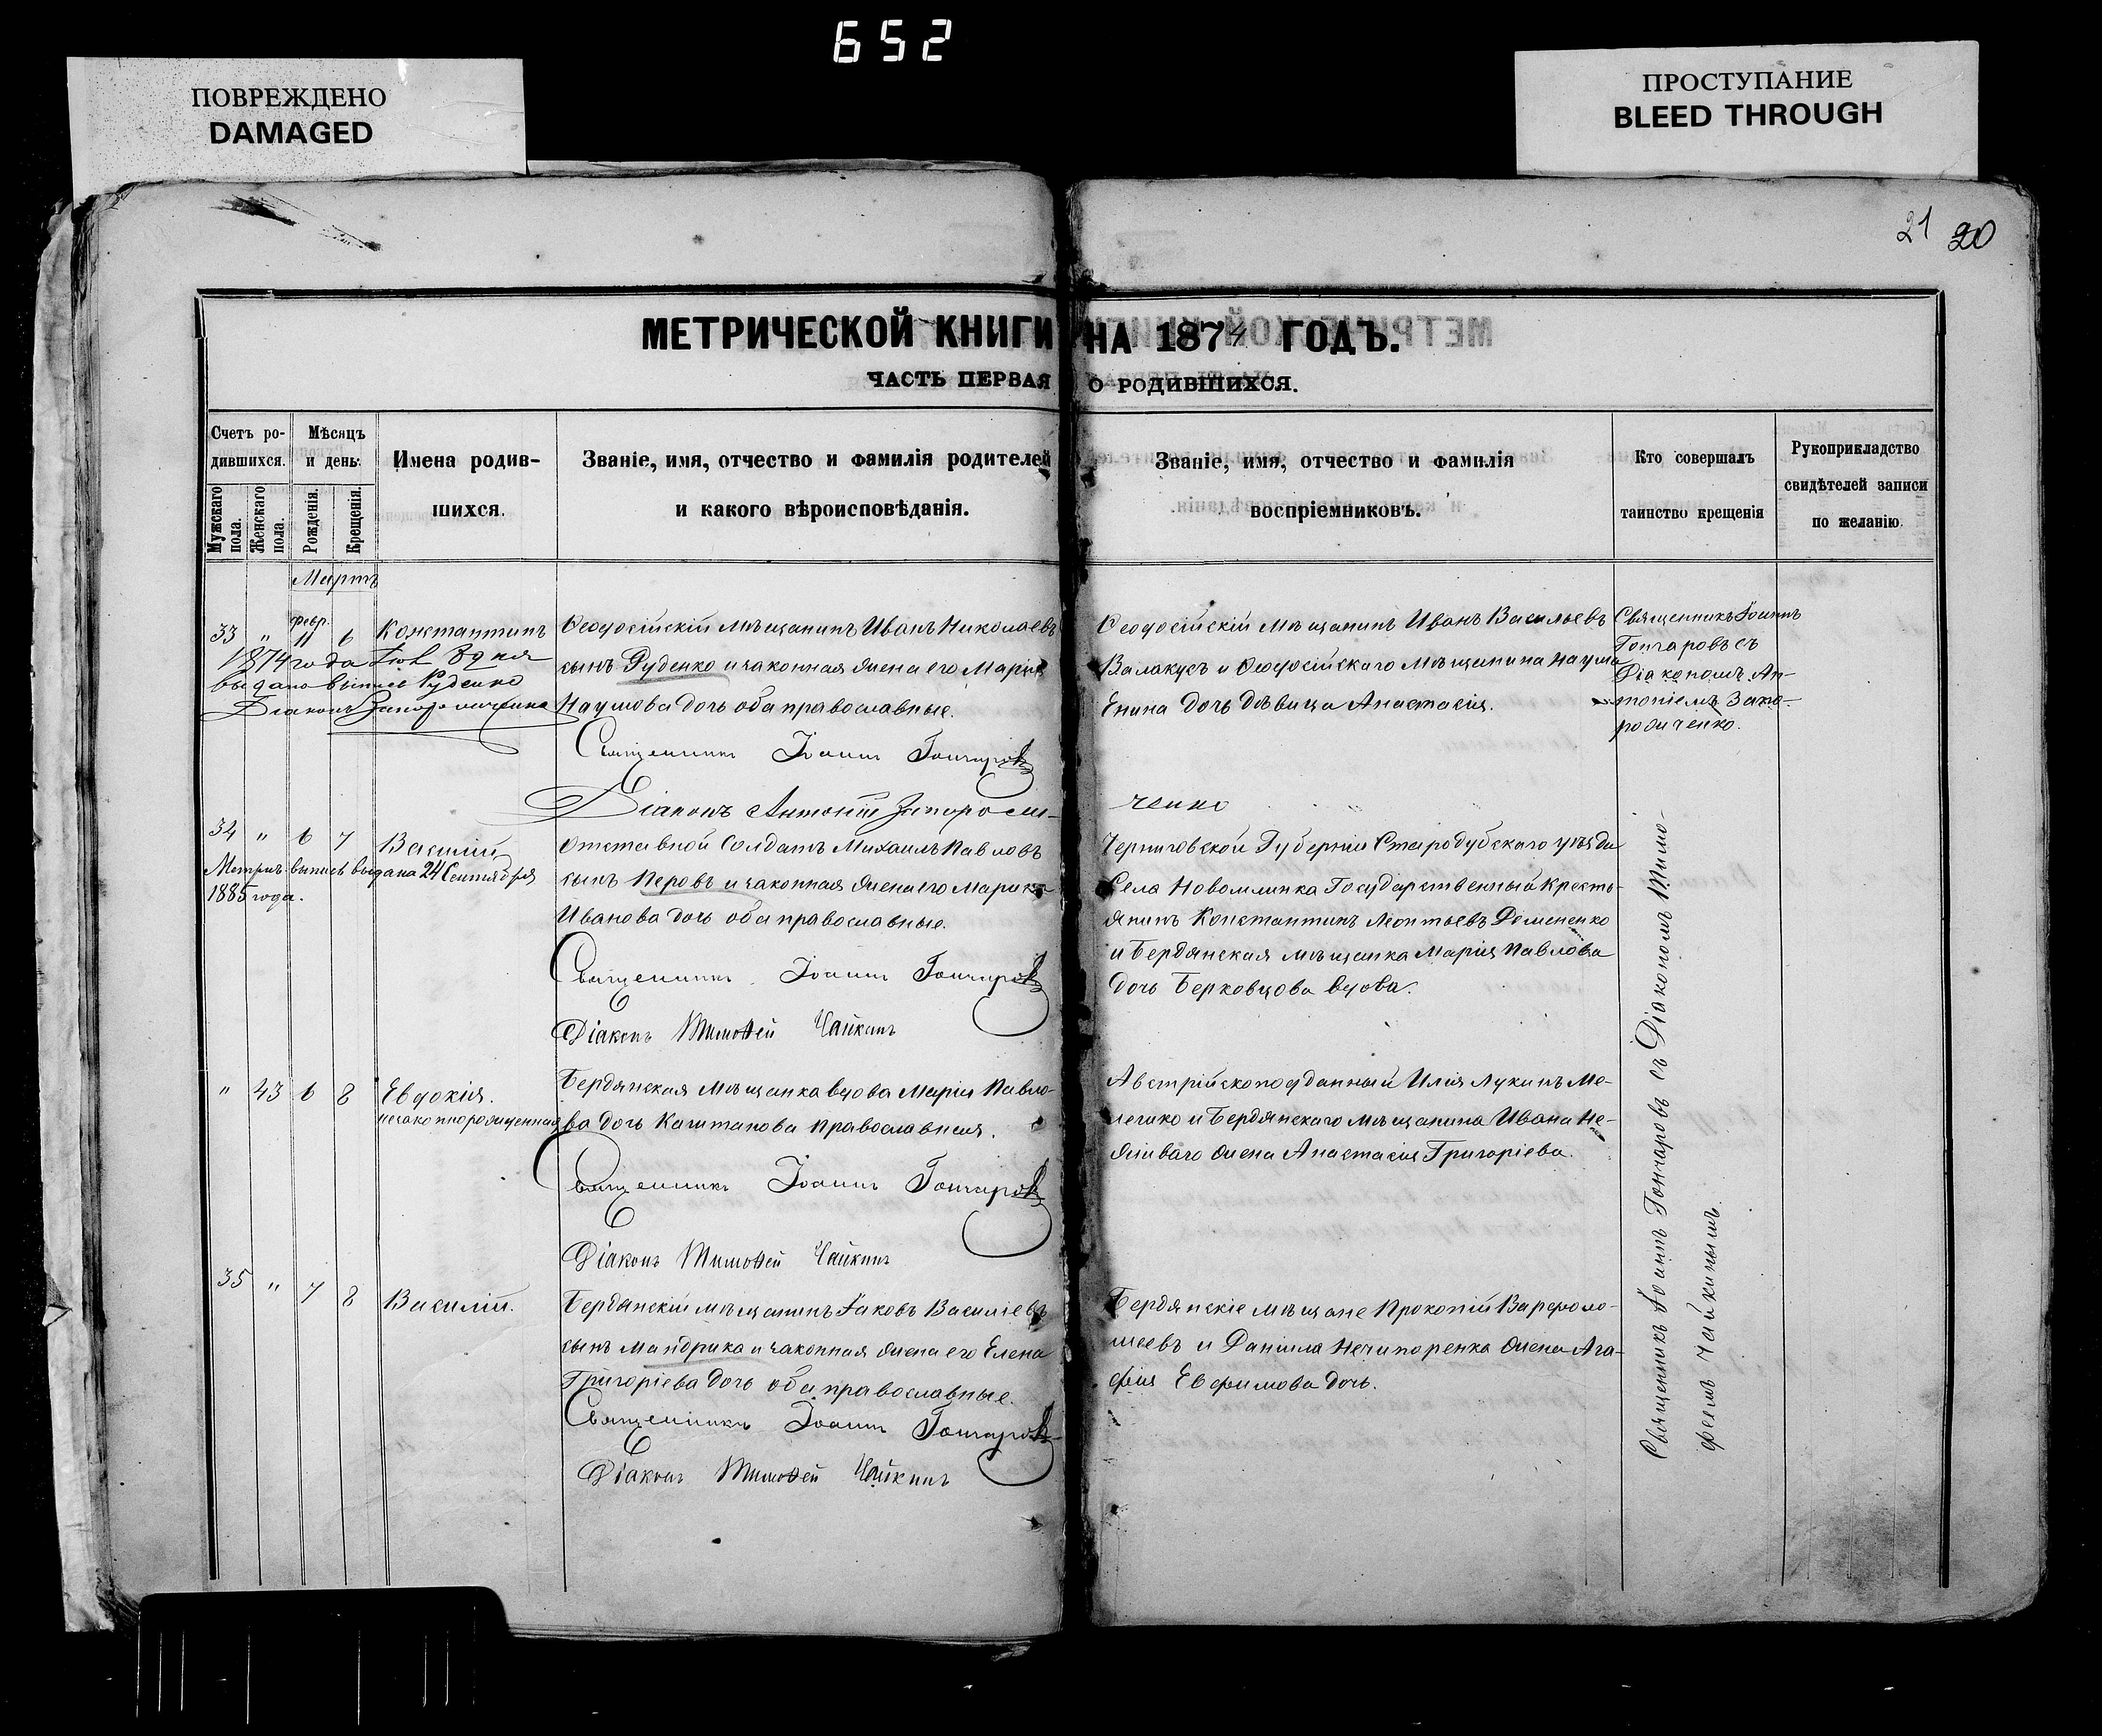 652
ПОВРЕЖДЕНО
DAMAGED
ПРОСТУПАНИЕ
BLEED THROUGH
21 20
МЕТРИЧЕСКОЙ КНИГИ НА 1874 ГОДЪ.
ЧАСТЬ ПЕРВАЯ О РОДИВШИХСЯ.
Счетъ ро-
дившихся.
Мужскаго пола.
Женскаго пола.
Мѣсяцъ
и день.
Рожденія.
Крещенія.
Имена родив-
шихся.
Званіе, имя, отчество и фамилія родителей
и какого вѣроисповѣданія.
Званіе, имя, отчество и фамилія
воспріемниковъ.
Кто совершалъ
таинство крещенія
Рукоприкладство
свидѣтелей записи
по желанію.
Мартъ
февр.
33 " 11 6 Константинъ
1874 года 8 дня
выдано выпись Руденко
Діаконъ
Ѳеодосійскій мѣщанинъ Иванъ Николаевъ
сынъ Руденко и законная жена его Марія
Наумова дочь оба православные.
Священникъ Іоаннъ Гончаровъ
Діаконъ Антоній Запорожи-
ченко
Ѳеодосійскій мѣщанинъ Иванъ Васильевъ
Валакусъ и Ѳеодосійскаго мѣщанина Наума
Енина дочь дѣвица Анастасія.
Священникъ Іоаннъ
Гончаровъ съ
Діакономъ Ан-
тоніемъ Запо-
рожиченко.
34 " 6 7 Василій
Метрич. выпись выдана 24 Сентября
1885 года.
Отставной Солдатъ Михаилъ Павловъ
сынъ Перовъ и законная жена его Марина
Иванова дочь оба православные.
Священникъ Іоаннъ Гончаровъ
Діаконъ Тимоѳей Чайкинъ
Черниговской Губерніи Стародубскаго уѣзда
Села Новомлинка Государственный Кресть-
янинъ Константинъ Леонтьевъ Деменко
и Бердянская мѣщанка Марія Павлова
дочь Берковцова вдова.
" 43 6 8 Евдокія.
незаконнорожденная
Бердянская мѣщанка вдова Марія Павло-
ва дочь Каштанова православная.
Священникъ Іоаннъ Гончаровъ
Діаконъ Тимоѳей Чайкинъ
Австрійскоподданный Илія Лукинъ Ме-
лешко и Бердянскаго мѣщанина Ивана Не-
живаго жена Анастасія Григоріева.
35 " 7 8 Василій.
Бердянскій мѣщанинъ Іаковъ Василіевъ
сынъ Мандрика и законная жена его Елена
Григоріева дочь оба православные.
Священникъ Іоаннъ Гончаровъ
Діаконъ Тимоѳей Чайкинъ
Бердянскіе мѣщане Прокопій Варфоло-
меевъ и Даніила Нечипоренка жена Ага-
фія Евфимова дочь.
Священникъ Іоаннъ Гончаровъ съ Діакономъ Тимо-
феемъ Чайкинымъ.